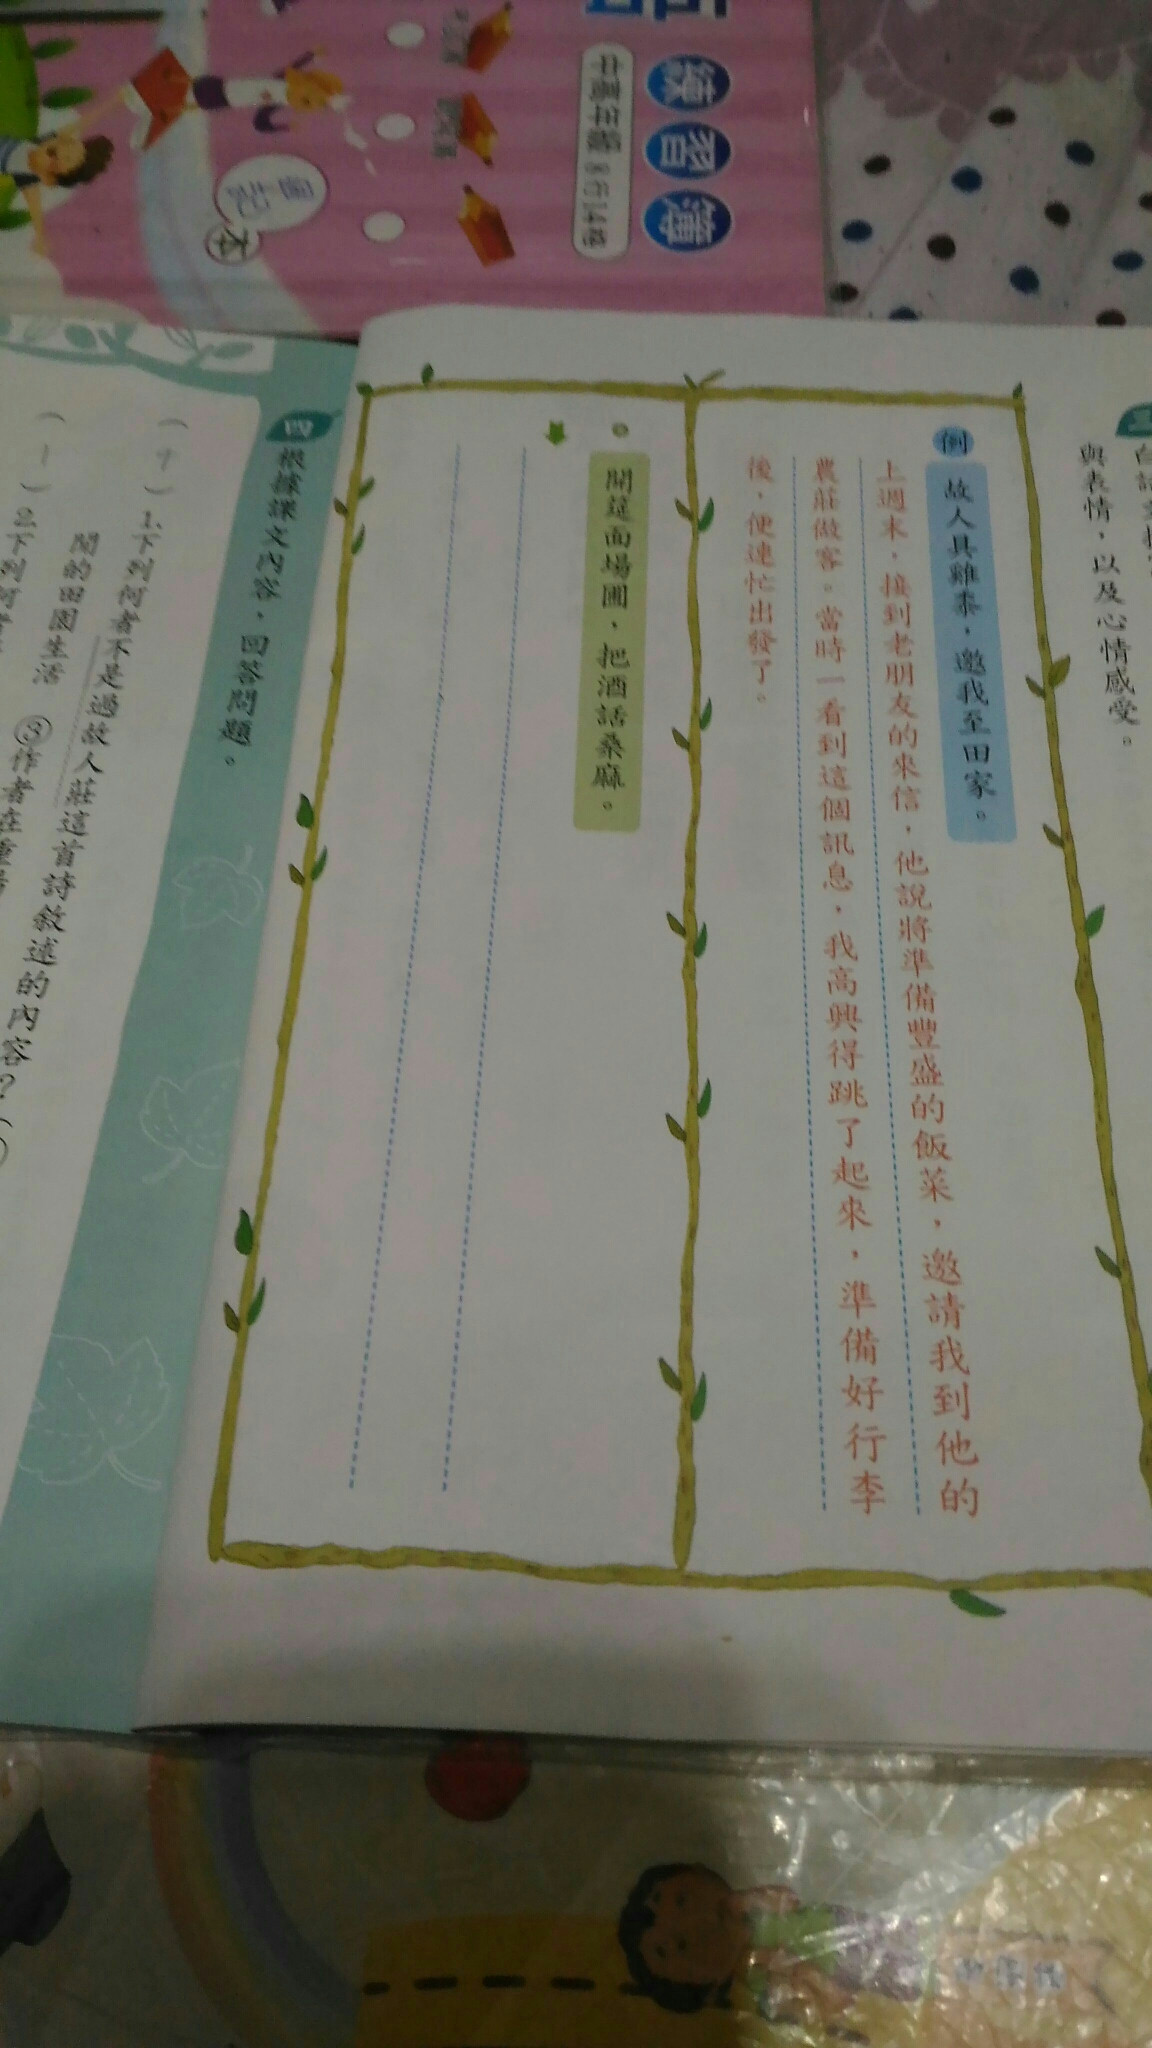 練習簿
中高年級 8行14格
本
與表情，以及心情感受。
例
故人具雞黍，邀我至田家。
上週末，接到老朋友的來信，他說將準備豐盛的飯菜，邀請我到他的
農莊做客。當時一看到這個訊息，我高興得跳了起來，準備好行李
後，便連忙出發了。
開筵面場圃，把酒話桑麻。
四 根據課文內容，回答問題。
1.下列何者不是過故人莊這首詩敘述的內容？
閒的田園生活 ③作者在重
2.下列何者